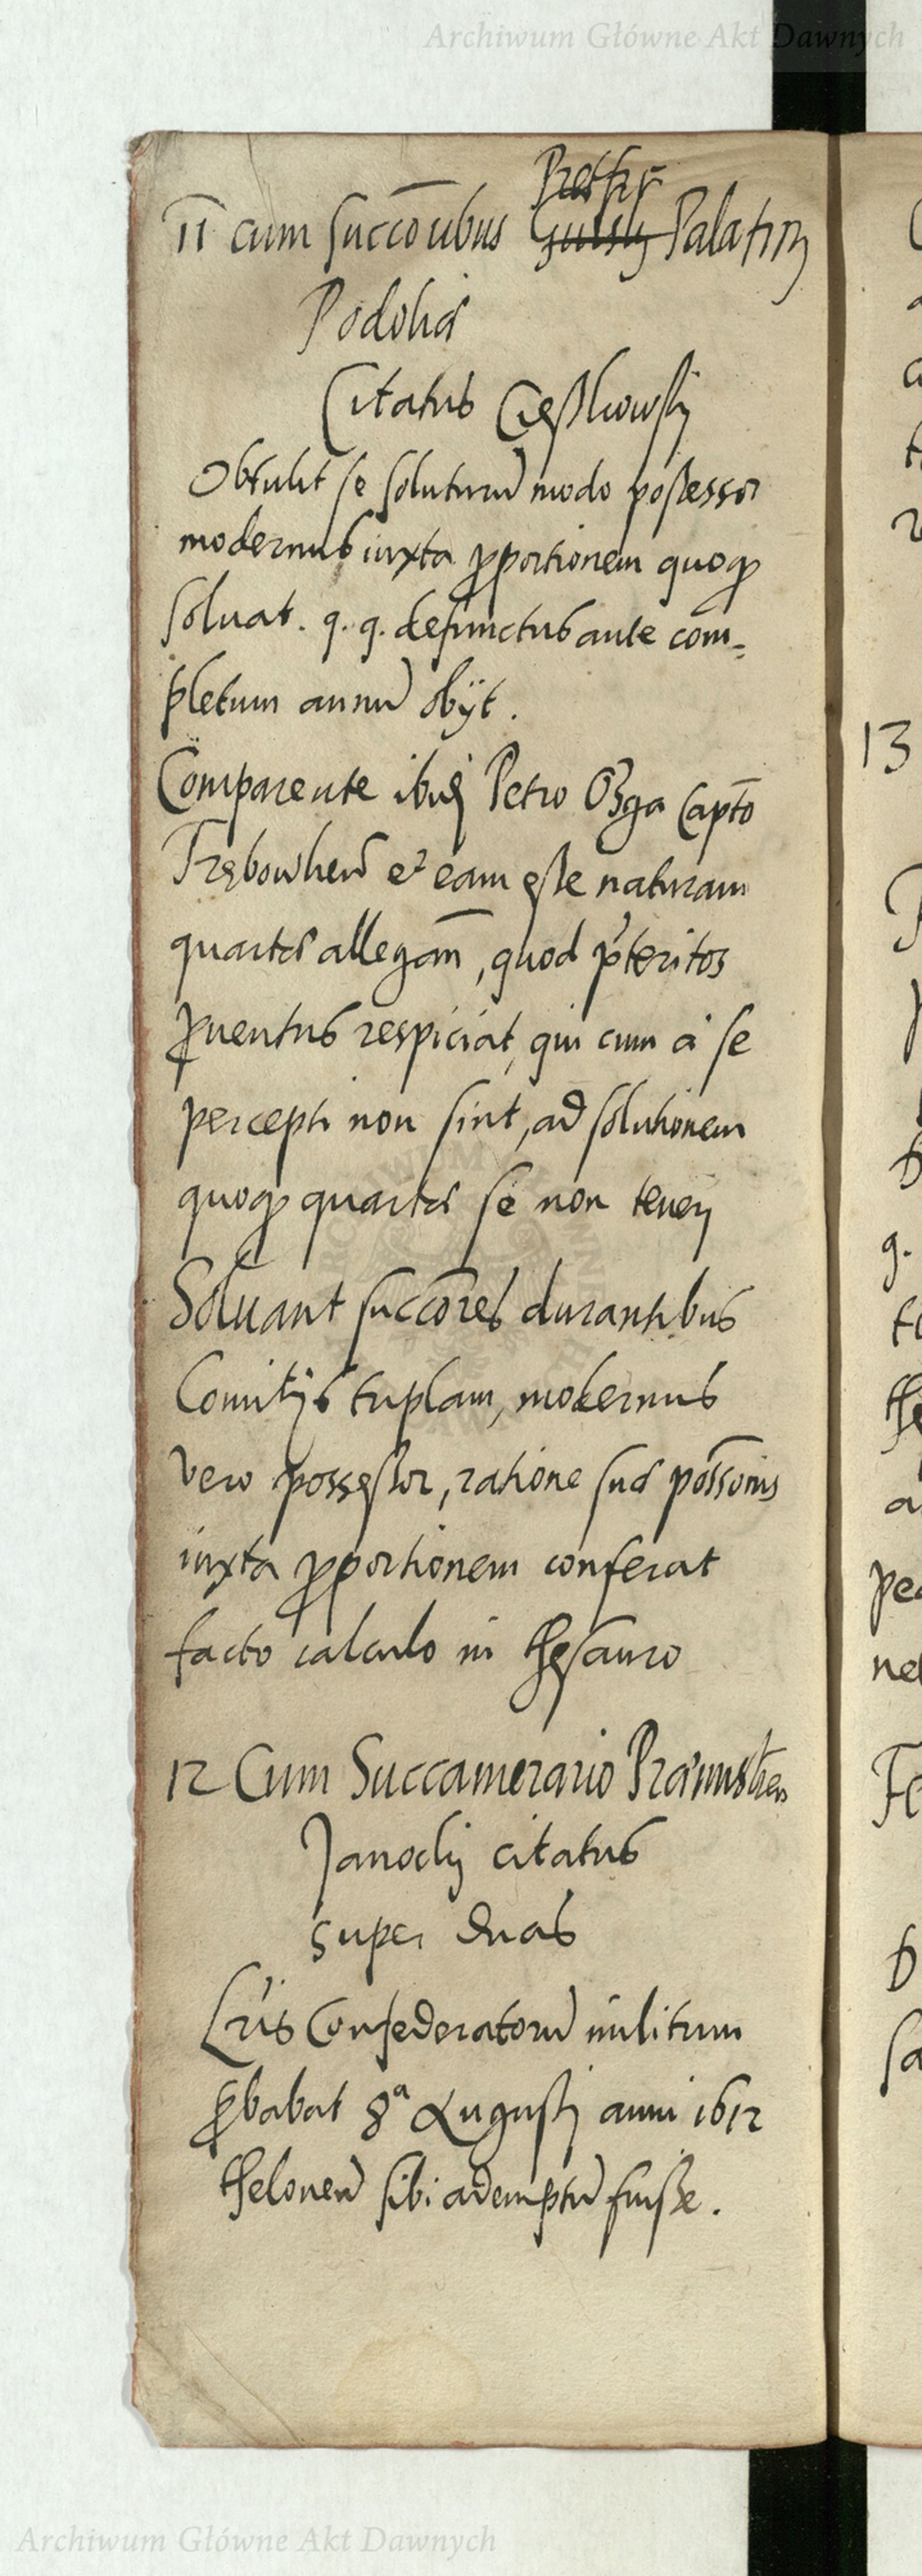 Archiwum Główne Akt Dawnych
Pretfiÿ
11 cum succoribus Gulskÿ Palatini
Podoliæ
Citatus Cieszkowskÿ
Obtulit se soluturū modo possessor
modernus iuxta proportionem quoqȝ
soluat. q. q. defunctus ante com=
pletum annū obÿt.
Comparente ibidē Petro Ożga Capto
Trębowlien et eam esse naturam
quartæ allegan̄, quod p̃teritos
prouentus respiciat, qui cum à se
percepti non sint, ad solutionem
quoqȝ quartæ se non teneri
Soluant succōres durantibus
Comitÿs tuplam, modernus
vero possessor, ratione suæ posšonis
iuxta proportionem conferat
facto calculo in thesauro
12 Cum Succamerario Præmislien
Janoclÿ citatus
super duas
Lr̄is Confederatorū militum
probabat 8ª Augusti anni 1612
theloneū sibi ademptū fuisse.
13
Archiwum Główne Akt Dawnych